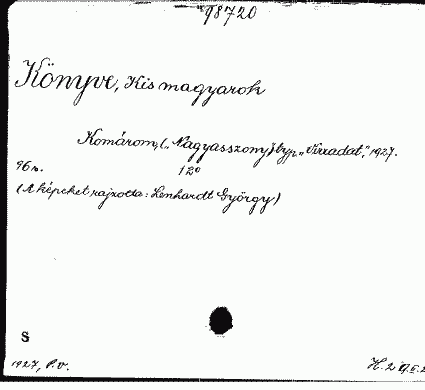 98720
Könyve, Kis magyarok
Komárom, („Nagyasszony) typ. „Virradat", 1927.
96 r. 12°
(A képeket rajzolta: Lenhardt György)
S
1927, P.v.
H. 2